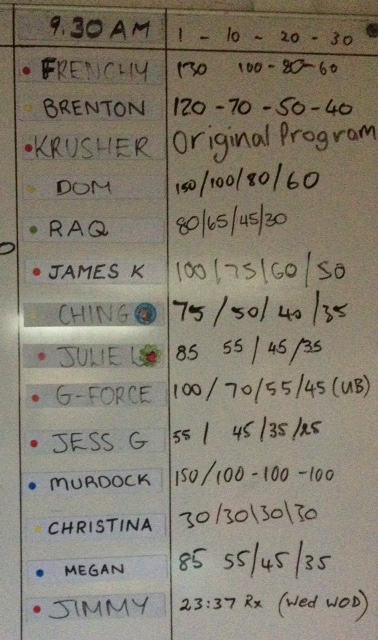 9.30 AM 1 - 10 - 20 - 30
FRENCHY 130 100 - 80 - 60
BRENTON 120 - 70 - 50 - 40
KRUSHER Original Program
DOM 150/100/80/60
RAQ 80/65/45/30
JAMES K 100/75/60/50
CHING 75/50/40/35
JULIE L 85 55/45/35
G-FORCE 100/70/55/45 (UB)
JESS G 55/ 45/35/25
MURDOCK 150/100-100-100
CHRISTINA 30/30\30\30
MEGAN 85 55/45/35
JIMMY 23:37 Rx (Wed WOD)